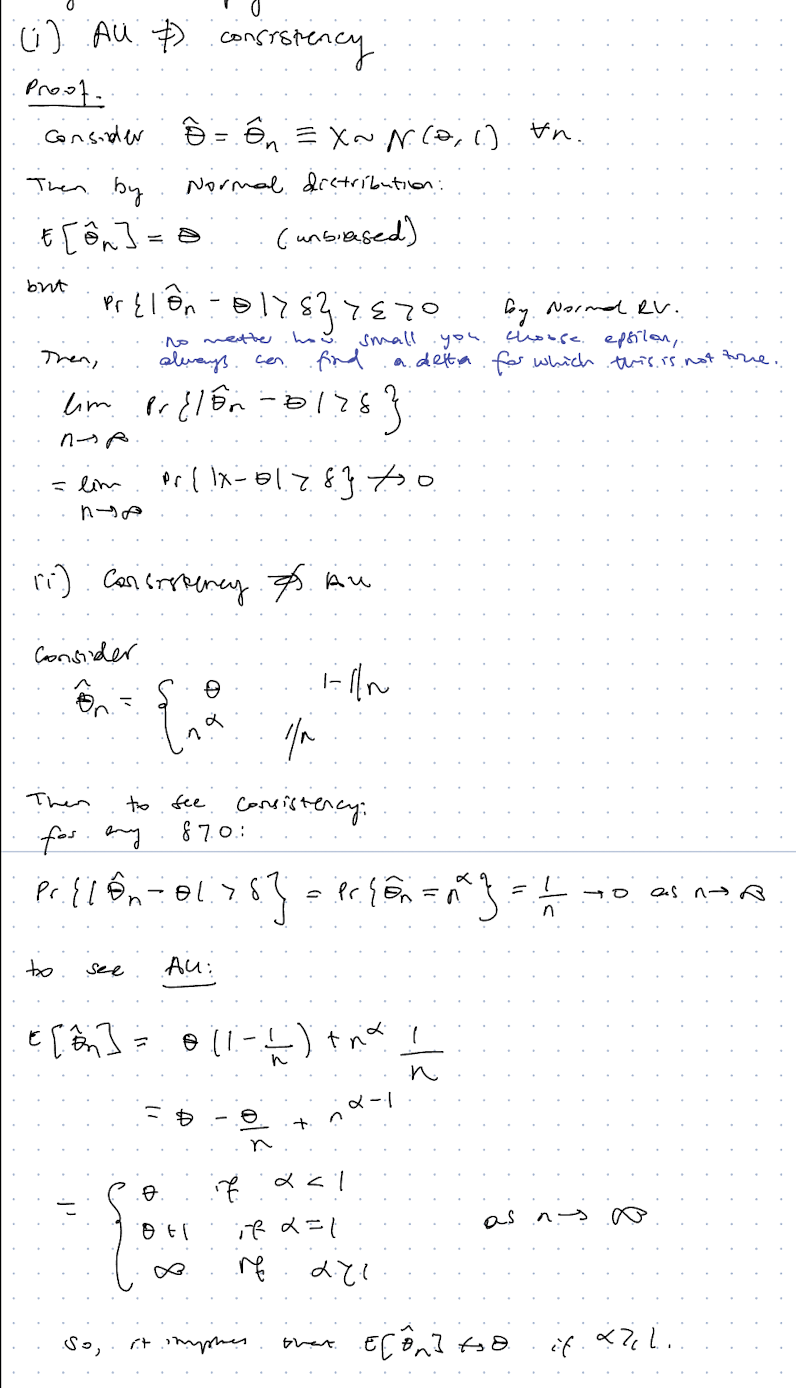 (i) AU ⇏ consistency
Proof.
Consider θ̂ = θ̂n ≡ X ~ N(θ, 1) ∀n.
Then by Normal distribution:
E[θ̂n] = θ (unbiased)
but Pr{|θ̂n - θ| > δ} > ε > 0 by Normal RV.
no matter how small you choose epsilon,
always can find a delta for which this is not true.
Then,
lim Pr{|θ̂n - θ| > δ}
n→∞
= lim Pr{|X-θ| > δ} ↛ 0
n→∞
(ii) Consistency ⇏ AU
Consider
θ̂n = { θ 1-1/n
n^α 1/n
Then to see consistency:
for any δ>0:
Pr{|θ̂n - θ| > δ} = Pr{θ̂n = n^α} = 1/n → 0 as n→∞
to see AU:
E[θ̂n] = θ(1-1/n) + n^α 1/n
= θ - θ/n + n^(α-1)
= { θ if α < 1
θ+1 if α=1 as n→∞
∞ if α>1
So, it implies that E[θ̂n] ↛ θ if α≥1.